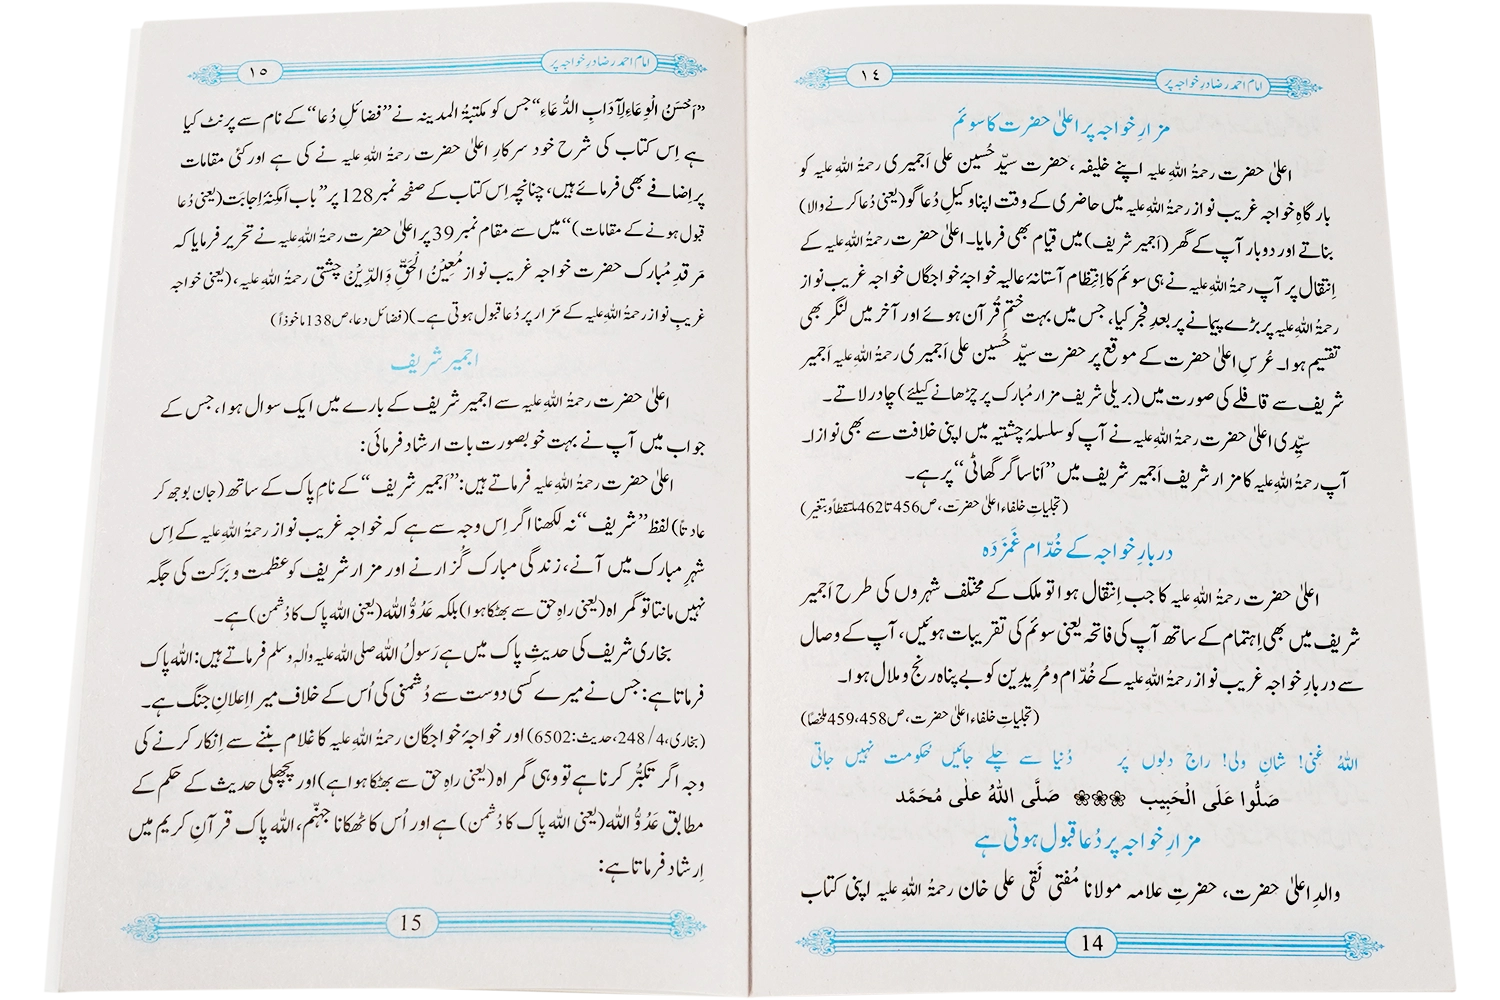 امام احمد رضا درِ خواجہ پر
١٤
مزارِ خواجہ پر اعلیٰ حضرت کا سوئم
اعلیٰ حضرت رحمۃُ اللہِ علیہ اپنے خلیفہ ،حضرت سیّد حُسین علی اَجمیری رحمۃُ اللہِ علیہ کو
بارگاہِ خواجہ غریب نواز رحمۃُ اللہِ علیہ میں حاضری کے وقت اپنا وکیلِ دُعا گو(یعنی دُعا کرنے والا)
بناتے اور دوبار آپ کے گھر (اَجمیر شریف) میں قیام بھی فرمایا۔ اعلیٰ حضرت رحمۃُ اللہِ علیہ کے
اِنتقال پر آپ رحمۃُ اللہِ علیہ نے ہی سوئم کا اِنتظام آستانۂ عالیہ خواجۂ خواجگاں خواجہ غریب نواز
رحمۃُ اللہِ علیہ پر بڑے پیمانے پر بعدِ فجر کیا، جس میں بہت ختمِ قُرآن ہوئے اور آخر میں لنگر بھی
تقسیم ہوا۔ عُرسِ اعلیٰ حضرت کے موقع پر حضرت سیّد حُسین علی اَجمیری رحمۃُ اللہِ علیہ اَجمیر
شریف سے قافلے کی صورت میں (بریلی شریف مزار مُبارک پر چڑھانے کیلئے) چادر لاتے۔
سیّدِی اعلیٰ حضرت رحمۃُ اللہِ علیہ نے آپ کو سلسلۂ چشتیہ میں اپنی خلافت سے بھی نوازا۔
آپ رحمۃُ اللہِ علیہ کا مزار شریف اَجمیر شریف میں ”اَنا ساگر گھاٹی“ پر ہے۔
(تجلیاتِ خلفاء اعلیٰ حضرت، ص456 تا 462 ملتقطاً و بتغیر)
دربارِ خواجہ کے خُدّام غمزدَہ
اعلیٰ حضرت رحمۃُ اللہِ علیہ کا جب اِنتقال ہوا تو ملک کے مختلف شہروں کی طرح اَجمیر
شریف میں بھی اِہتمام کے ساتھ آپ کی فاتحہ یعنی سوئم کی تقریبات ہوئیں، آپ کے وصال
سے دربارِ خواجہ غریب نواز رحمۃُ اللہِ علیہ کے خُدّام و مُریدین کو بے پناہ رنج و ملال ہوا۔
(تجلیاتِ خلفاء اعلیٰ حضرت، ص458، 459 ملخصاً)
اللہُ غنی! شانِ ولی! راج دلوں پر دُنیا سے چلے جائیں حُکومت نہیں جاتی
صَلُّوا عَلَی الْحَبِیب صَلَّی اللہُ عَلٰی مُحَمَّد
مزارِ خواجہ پر دُعا قبول ہوتی ہے
والدِ اعلیٰ حضرت، حضرتِ علامہ مولانا مُفتی نَقی علی خان رحمۃُ اللہِ علیہ اپنی کتاب
14
امام احمد رضا درِ خواجہ پر
١٥
”اَحْسَنُ الْوِعَاءِ لِآدَابِ الدُّعَاءِ“ جس کو مکتبۃُ المدینہ نے ”فضائلِ دُعا“ کے نام سے پرنٹ کیا
ہے اِس کتاب کی شرح خود سرکارِ اعلیٰ حضرت رحمۃُ اللہِ علیہ نے کی ہے اور کئی مقامات
پر اِضافے بھی فرمائے ہیں، چنانچہ اِس کتاب کے صفحہ نمبر 128 پر ”باب اَمکِنۂِ اِجابَت (یعنی دُعا
قبول ہونے کے مقامات)“ میں سے مقام نمبر 39 پر اعلیٰ حضرت رحمۃُ اللہِ علیہ نے تحریر فرمایا کہ
مَرقدِ مُبارک حضرت خواجہ غریب نواز مُعِیْنُ الْحَقِّ وَالدِّیْن چشتی رحمۃُ اللہِ علیہ، (یعنی خواجہ
غریبِ نواز رحمۃُ اللہِ علیہ کے مزار پر دُعا قبول ہوتی ہے۔) (فضائلِ دعا، ص138 ماخوذاً)
اجمیر شریف
اعلیٰ حضرت رحمۃُ اللہِ علیہ سے اجمیر شریف کے بارے میں ایک سوال ہوا، جس کے
جواب میں آپ نے بہت خوبصورت بات ارشاد فرمائی:
اعلیٰ حضرت رحمۃُ اللہِ علیہ فرماتے ہیں: ”اَجمیر شریف“ کے نامِ پاک کے ساتھ (جان بوجھ کر
عادتاً) لفظ ”شریف“ نہ لکھنا اگر اِس وجہ سے ہے کہ خواجہ غریب نواز رحمۃُ اللہِ علیہ کے اِس
شہرِ مبارک میں آنے، زندگی مبارک گُزارنے اور مزار شریف کو عظمت و بَرَکت کی جگہ
نہیں مانتا تو گمراہ (یعنی راہِ حق سے بھٹکا ہوا) بلکہ عَدُوُّ اللہ (یعنی اللہ پاک کا دُشمن) ہے۔
بخاری شریف کی حدیثِ پاک میں ہے رَسولُ اللہ صلی اللہ علیہ واٰلہٖ وسلم فرماتے ہیں: اللہ پاک
فرماتا ہے: جس نے میرے کسی دوست سے دُشمنی کی اُس کے خلاف میرا اِعلانِ جنگ ہے۔
(بخاری، 4/ 248، حدیث: 6502) اور خواجۂ خواجگان رحمۃُ اللہِ علیہ کا غلام بننے سے اِنکار کرنے کی
وجہ اگر تکبّر کرنا ہے تو وہی گمراہ (یعنی راہِ حق سے بھٹکا ہوا ہے) اور پچھلی حدیث کے حکم کے
مطابق عَدُوُّ اللہ (یعنی اللہ پاک کا دُشمن) ہے اور اُس کا ٹھکانا جہنّم، اللہ پاک قرآنِ کریم میں
اِرشاد فرماتا ہے:
15